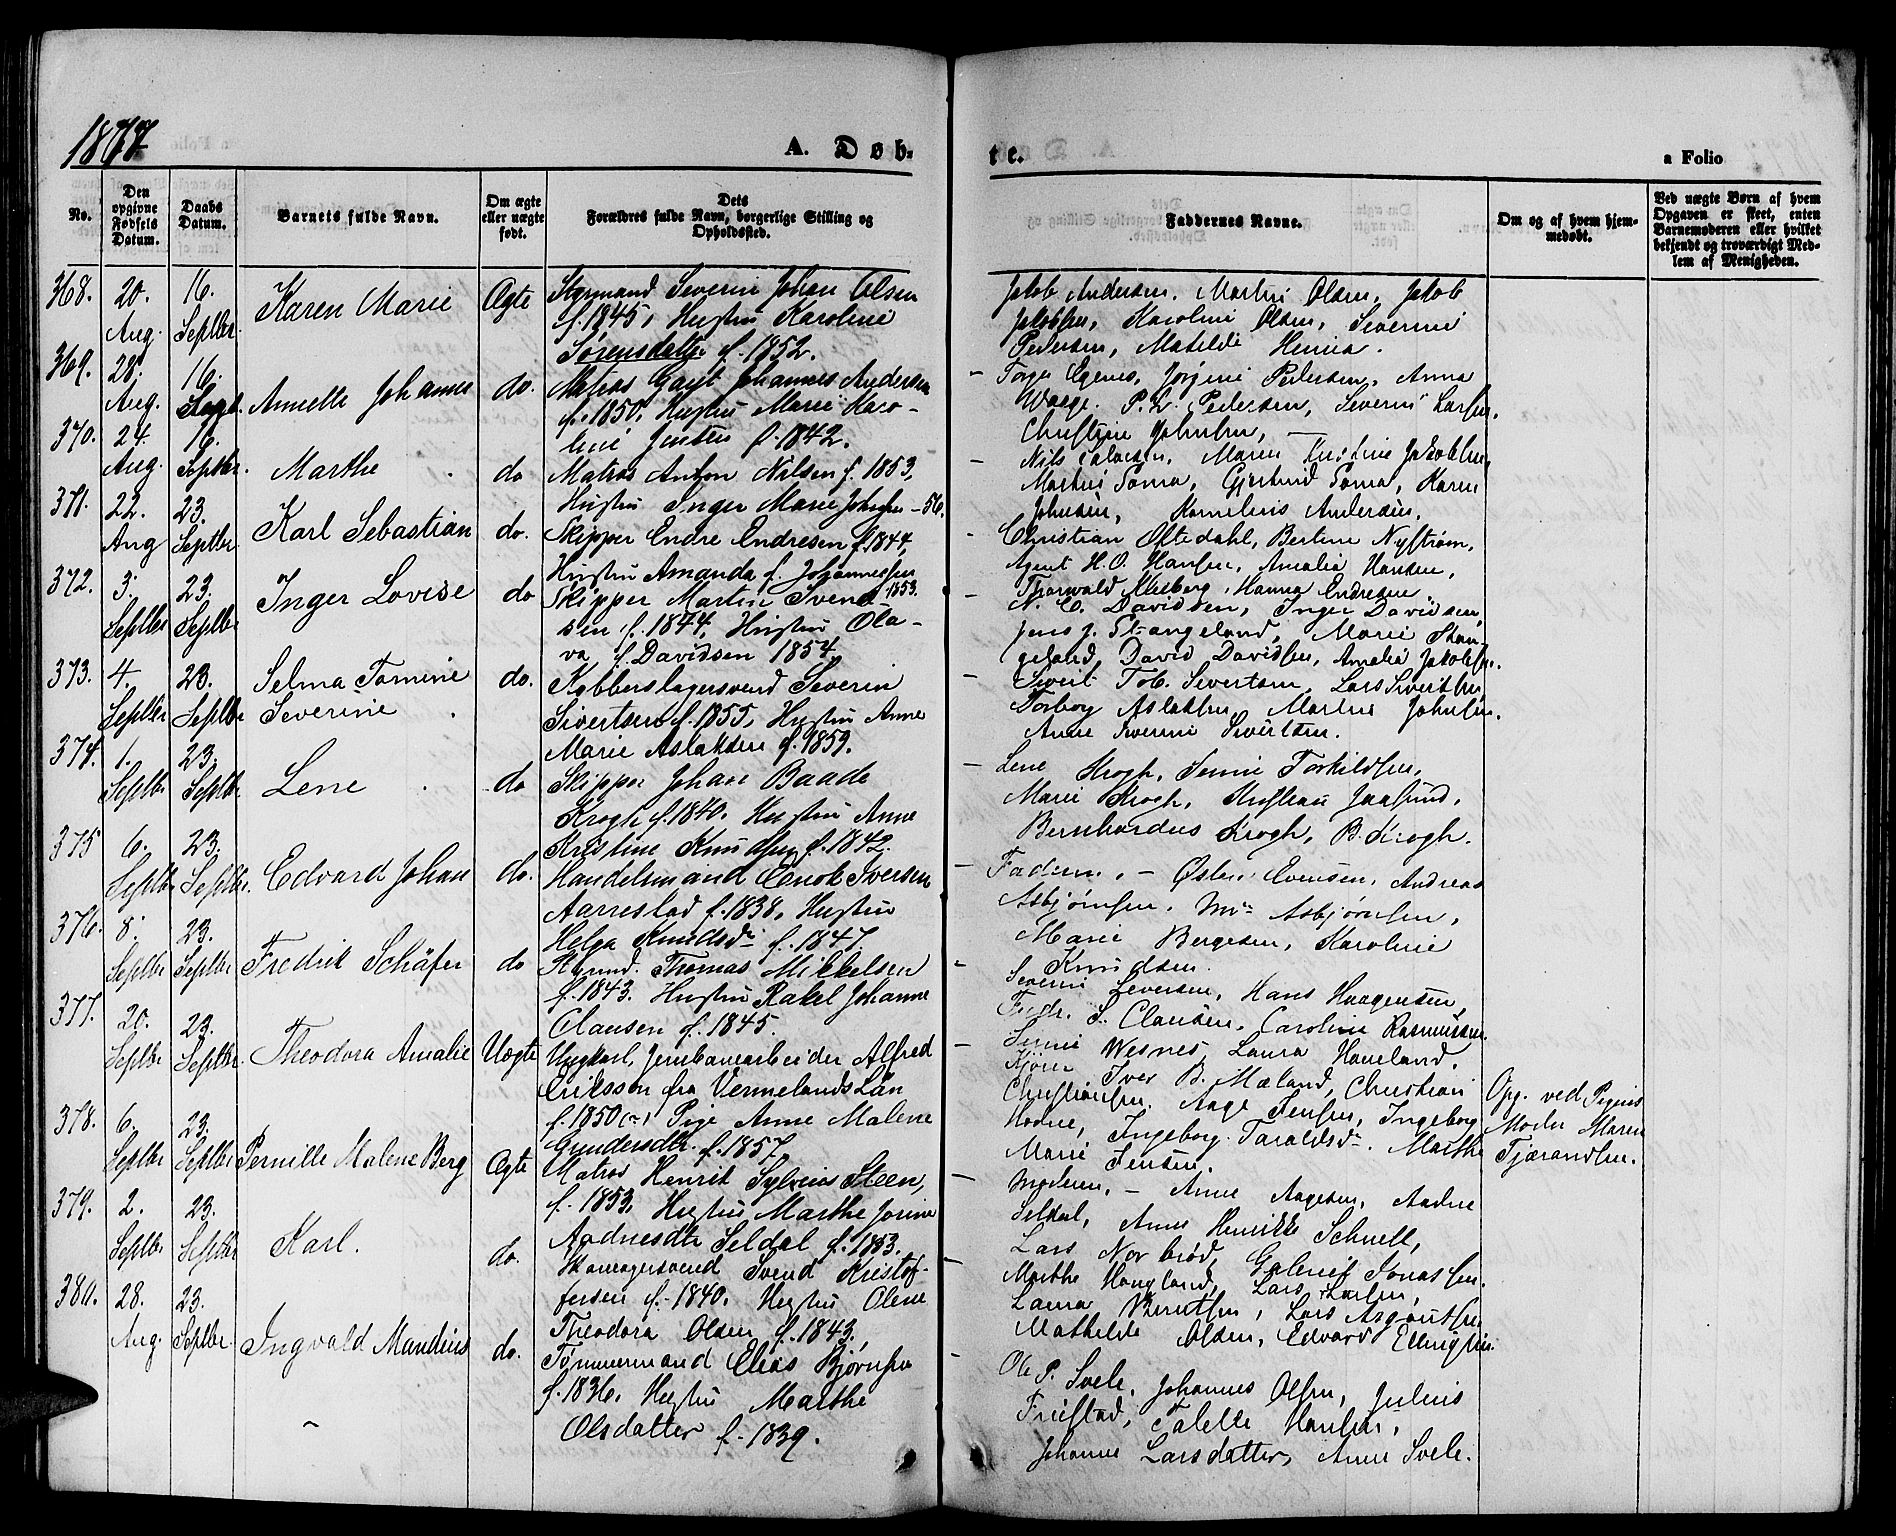 1877
A. Døb-
te.
a Folio
No.
Den opgivne Fødsels Datum.
Daabs Datum.
Barnets fulde Navn.
Om ægte eller uægte født.
Dets Forældres fulde Navn, borgerlige Stilling og Opholdssted.
Faddernes Navne.
Om og af hvem hjem-
medøbt.
Ved uægte Børn af hvem
Opgaven er skeet, enten
Barnemoderen eller hvilket
bekjendt og troværdigt Med-
lem af Menigheden.
368. 20. Aug. 16. Septbr. Karen Marie Ægte
Styrmand Severin Johan Olsen
f. 1845, Hustru Karoline
Sørensdatter f. 1852.
Jakob Andersen, Martin Olsen, Jakob
Jakobsen, Karoline Olsen, Severine
Pedersen, Matilde
369. 28. Aug. 16. Sept. Annette Johanne do.
Matros Johannes Andersen
f. 1850, Hustru Marie Karo-
line Jensen f. 1842.
– Torger Egenes, Jørgine Pedersen, Anna
Waage. P. L. Pedersen, Severin Larsen,
Christine Johnsen, —
370. 24. Aug. 16. Septbr. Marthe do
Matros Anton Nilsen f. 1853,
Hustru Inger Marie Johnsen – 56.
– Nils Maren Kristine Jakobsen,
Martin Soma, Gjertrud Soma, Karen
Johnsen, Kornelius Andersen.
371. 22. Aug 23. Septbr. Karl Sebastian do.
Skipper Endre Endresen f. 1844,
Hustru Amanda f. Johannessen
1853.
– Christian Oftedahl, Bertine Nystrøm,
Agent H. O. Hansen, Amalia Hansen,
Thorwald Hanna Endresen.
372. 3. Septbr 23. Septbr Inger Lovise do
Skipper Martin Svend-
sen f. 1844, Hustru Ola-
va f. Davidsen 1854.
– N. C. Davidsen, Inger Davidsen,
Jens J. Stangeland, Marie Stan-
geland, David Davidsen, Amalie Jakobsen.
373. 4. Septbr 23. Septbr Selma Tomine
Severine do.
Kobberslagersvend Severin
Sivertsen f. 1855, Hustru Anne
Marie Aslaksen f. 1859.
– Sivert Tob. Sivertsen, Lars Sivertsen,
Torborg Aslaksen, Martin Johnsen.
Anne Severine Sivertsen.
374. 1. Septbr 23. Septbr. Lene do
Skipper Johan Baade
Krogh f. 1840. Hustru Anne
Kristine Knudsen f. 1842.
– Lene Krogh, Torkildsen,
Marie Krogh,
Bernhardus Krogh, B. Krogh.
375 6. Septbr 23. Septbr. Edvard Johan do.
Handelsmand Enok Iversen
Aarrestad f. 1838. Hustru
Helga Knudsdr f. 1847.
– Faderen. – Østen Evensen, Andreas
Asbjørnsen, Asbjørnsen,
Marie Bergesen, Karoline
Knudsen.
376. 8. Septbr 23. Septbr Fredrik Schäfer do
Styrmd. Thomas Mikkelsen
f. 1843. Hustru Rakel Johanne
Clausen f. 1845.
– Severin Hans Haagensen,
Fredr. S. Clausen, Caroline Rasmussen.
Wesnes, Laura Haneland,
377. 20. Septbr 23. Septbr. Theodora Amalie Uægte
Ungkarl, Jernbanearbeider Alfred
Eriksson fra Vermelands Län
f. 1850, Pige Anne Malene
Gundersdtr. f. 1857.
– Iver B. Mæland, Christian
Christiansen, Aage Jensen, Ingeborg
Hodne, Ingeborg Taraldsdr. Marthe
Marie Jensen.
Opg. ved Pigens
Moder Maren
Tjærandsen.
378. 6. Septbr 23. Septbr Pernille Malene Berg Ægte
Matros Henrik Sylvius Steen,
f. 1853, Hustru Marthe Jorine
Aadnesdtr Seldal f. 1853.
– Moderen. – Anne Aagesen, Aadne
Seldal, Anne Henrikke Schnell,
379. 2. Septbr 23. Septbr Karl. do.
Skomagersvend Svend Kristof-
fersen f. 1840. Hustru Olene
Theodora Olsen f. 1843.
Lars Jonassen.
Marthe Haugland, Lars Larsen,
Laura Berntsen, Lars Asgautsen
Mathilde Olsen, Edvard Ellingsen.
380. 28. Aug 23. Septbr. Ingvald Mandius do.
Tømmermand Elias Bjørnsen
f. 1836. Hustru Marthe
Olsdatter f. 1839.
– Ole P. Svele, Johannes Olsen, Julius
Friestad, Talette Hansen,
Johanne Larsdatter, Anne Svele.